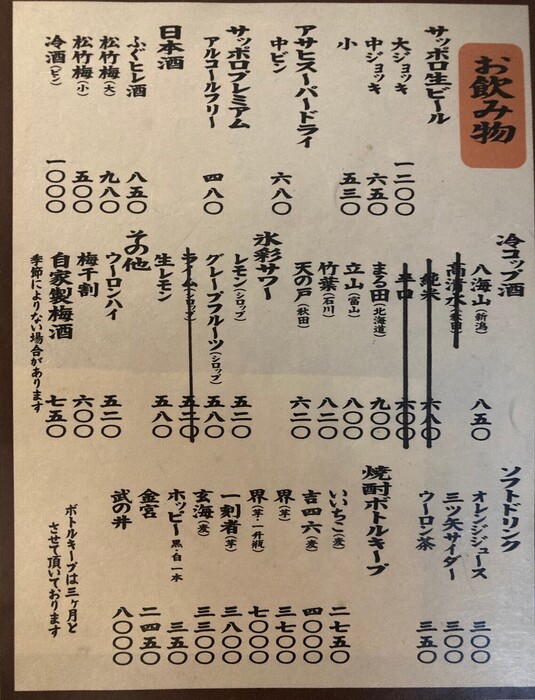 お飲み物
サッポロ生ビール
大ジョッキ 一二〇〇
中ジョッキ 六五〇
小 五三〇
アサヒスーパードライ
中ビン 六八〇
サッポロプレミアム
アルコールフリー 四八〇
日本酒
ふぐヒレ酒 八五〇
松竹梅(大) 九八〇
松竹梅(小) 五〇〇
冷酒(ビン) 一〇〇〇
冷コップ酒
八海山(新潟) 八五〇
高清水(秋田)
純米 六八〇
辛口 六〇〇
まる田(北海道) 九〇〇
立山(富山) 八〇〇
竹葉(石川) 八二〇
天の戸(秋田) 六二〇
氷彩サワー
レモン(シロップ) 五二〇
グレープフルーツ(シロップ) 五八〇
ライム(シロップ) 五二〇
生レモン 五八〇
その他
ウーロンハイ 五二〇
梅干割 六〇〇
自家製梅酒 七五〇
季節によりない場合があります
ソフトドリンク
オレンジジュース 三〇〇
三ツ矢サイダー 三〇〇
ウーロン茶 三五〇
焼酎ボトルキープ
いいちこ(麦) 二七五〇
吉四六(麦) 四〇〇〇
界(芋) 三七〇〇
界(芋・一升瓶) 七〇〇〇
一刻者(芋) 三八〇〇
玄海(麦) 三三〇〇
ホッピー黒・白一本 三五〇
金宮 二四五〇
武の井 八〇〇〇
ボトルキープは三ヶ月と
させて頂いております